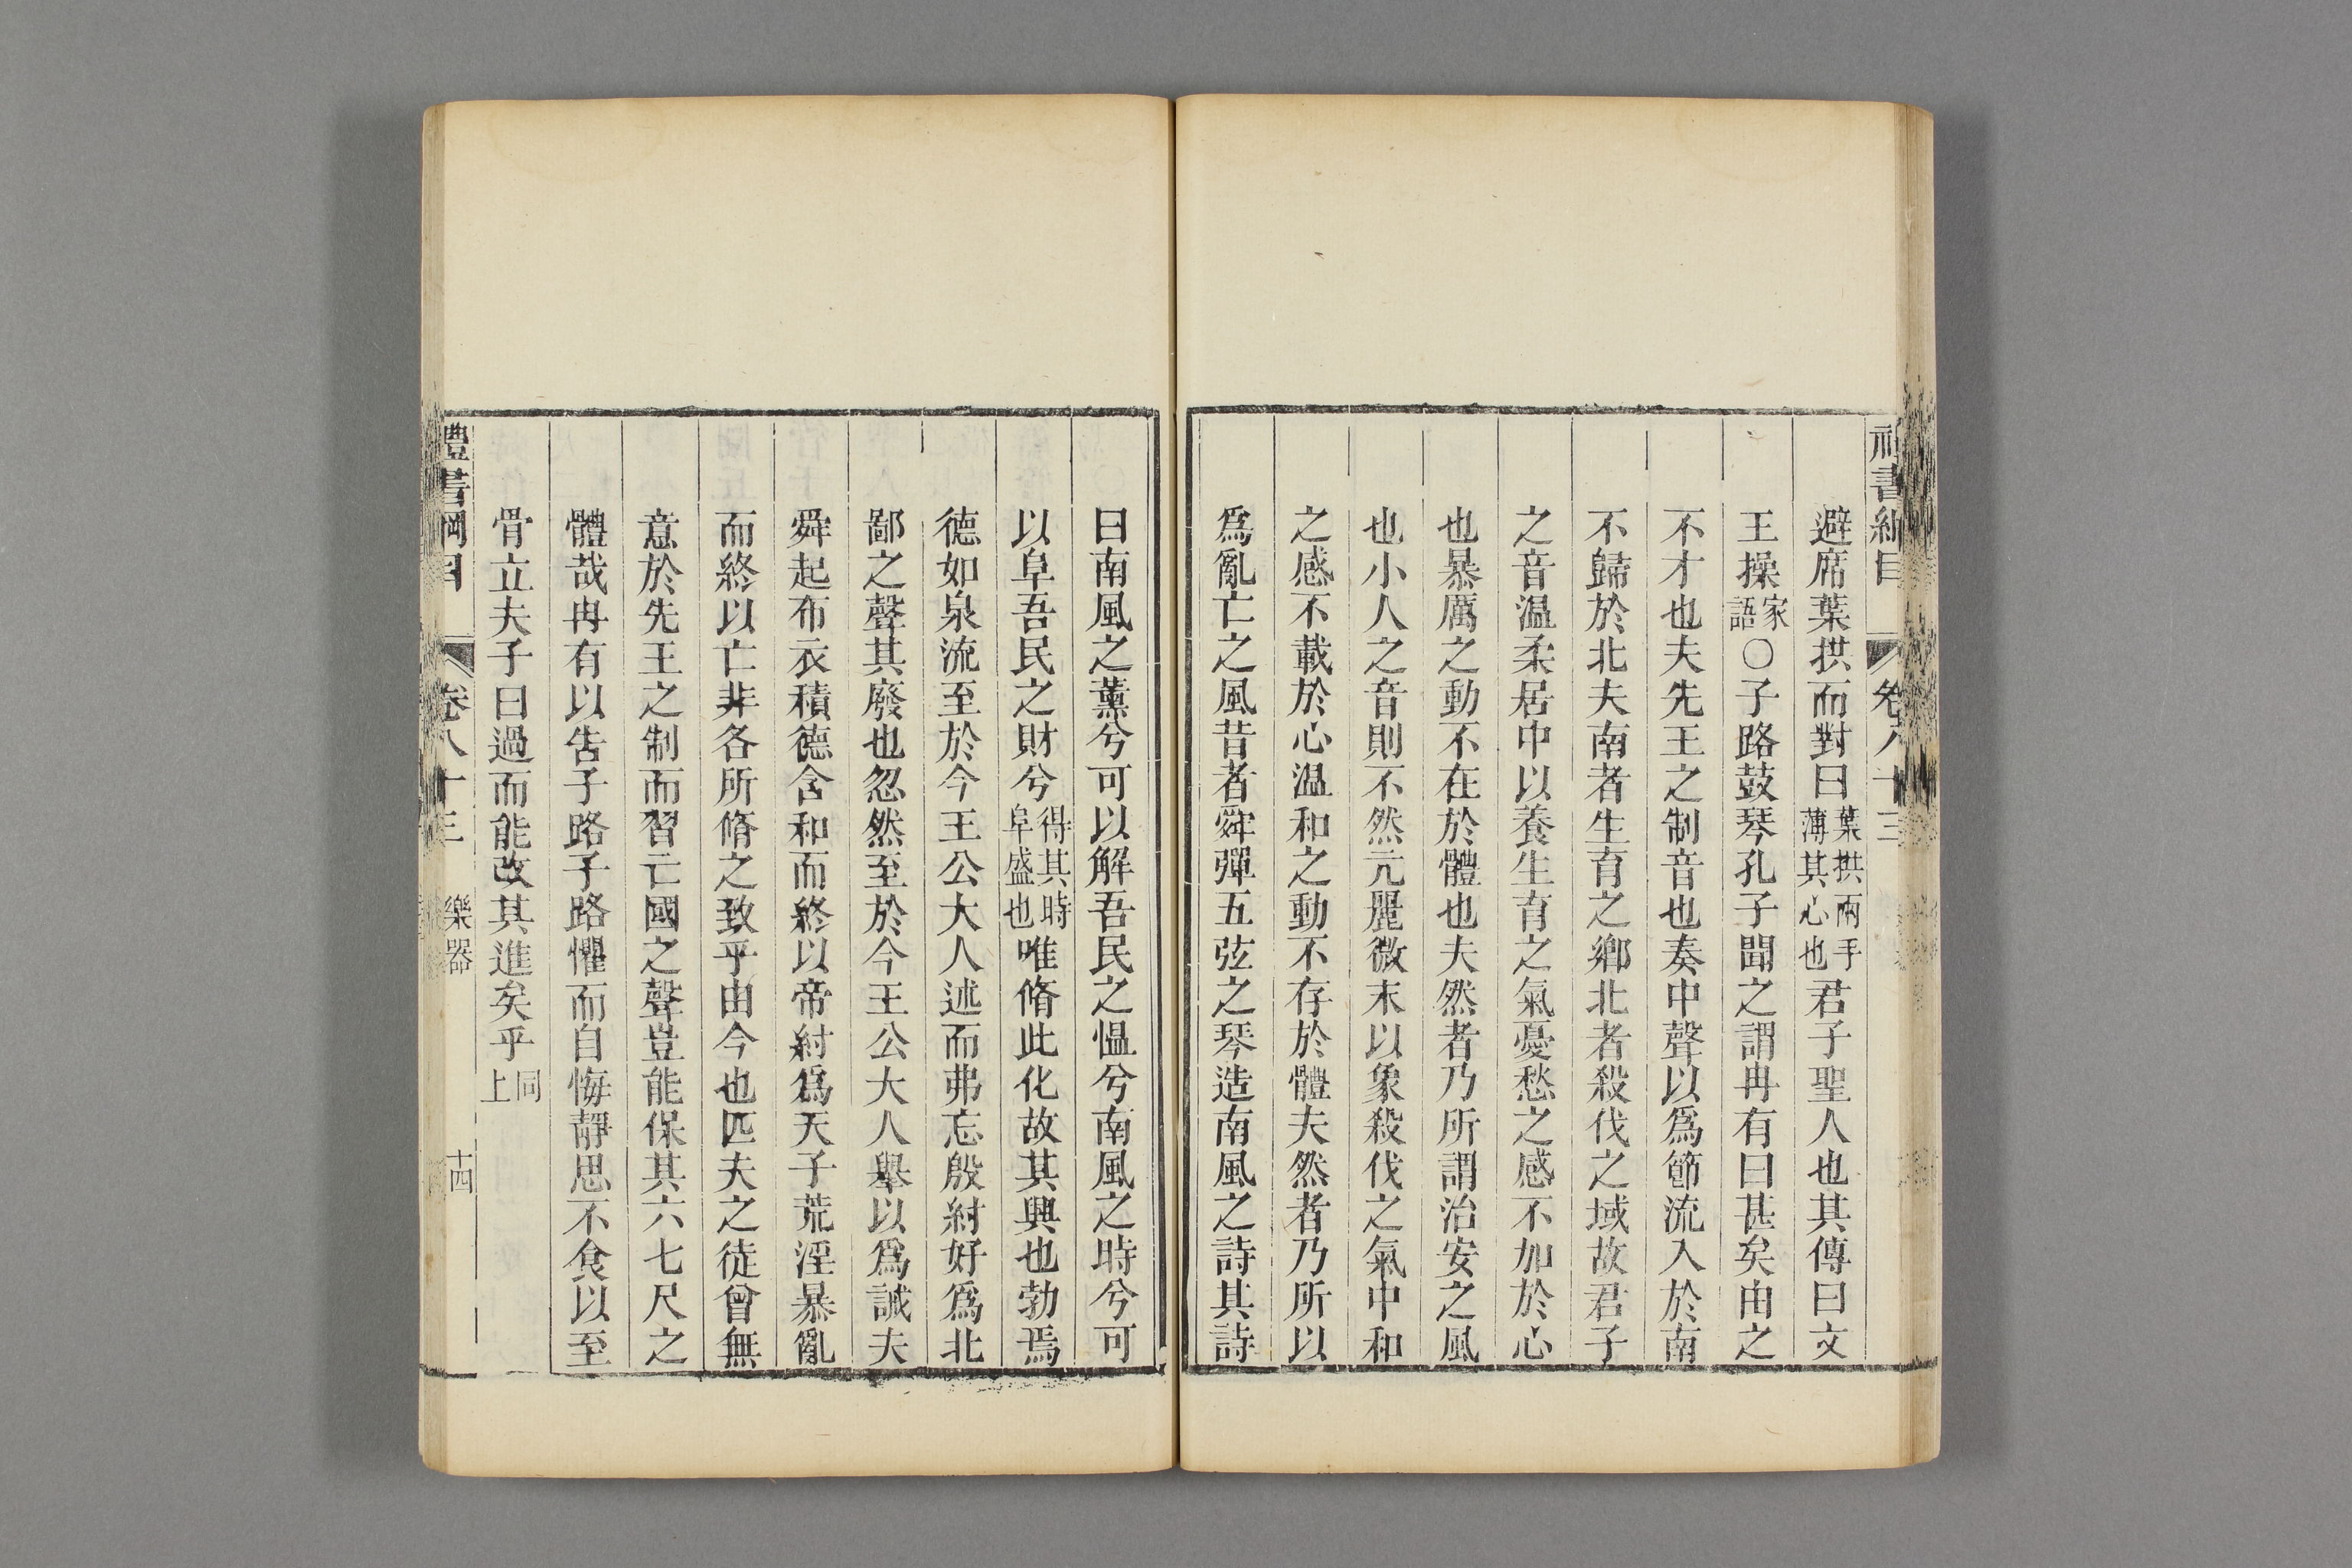 禮書綱目 卷八十三
避席葉拱而對曰葉拱兩手薄其心也君子聖人也其傳曰文
王操家語〇子路鼓琴孔子聞之謂冉有曰甚矣由之
不才也夫先王之制音也奏中聲以爲節流入於南
不歸於北夫南者生育之鄉北者殺伐之域故君子
之音温柔居中以養生育之氣憂愁之感不加於心
也暴厲之動不在於體也夫然者乃所謂治安之風
也小人之音則不然亢麗微末以象殺伐之氣中和
之感不載於心温和之動不存於體夫然者乃所以
爲亂亡之風昔者舜彈五弦之琴造南風之詩其詩
曰南風之薰兮可以解吾民之慍兮南風之時兮可
以阜吾民之財兮得其時阜盛也唯脩此化故其興也勃焉
德如泉流至於今王公大人述而弗忘殷紂好爲北
鄙之聲其廢也忽然至於今王公大人舉以爲誡夫
舜起布衣積德含和而終以帝紂爲天子荒淫暴亂
而終以亡非各所脩之致乎由今也匹夫之徒曾無
意於先王之制而習亡國之聲豈能保其六七尺之
體哉冉有以告子路子路懼而自悔靜思不食以至
骨立夫子曰過而能改其進矣乎同上
禮書綱目 卷八十三 樂器 十四